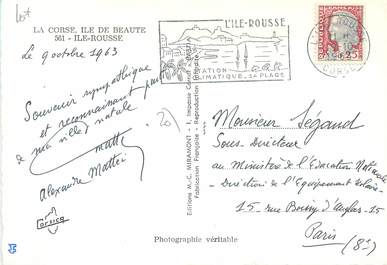 LA CORSE, ILE DE BEAUTE
561 - ILE-ROUSSE
Le 9 octobre 1963
Souvenir sympathique
et reconnaissant pour
de ma ville natale
Alexandre Mattei
Corsica
20f
Editions M.-C. MIRAMONT - 7, Impasse
Fabrication Française - Reproduction
L'ILE-ROUSSE
STATION
CLIMATIQUE, SA PLAGE
CORSE
0,25
Monsieur Ségaud
Sous-Directeur
au Ministère de l'Education Nationale
Direction de l'Equipement Scolaire
15 rue Boissy d'Anglas - 15
Paris
(8e)
Photographie véritable